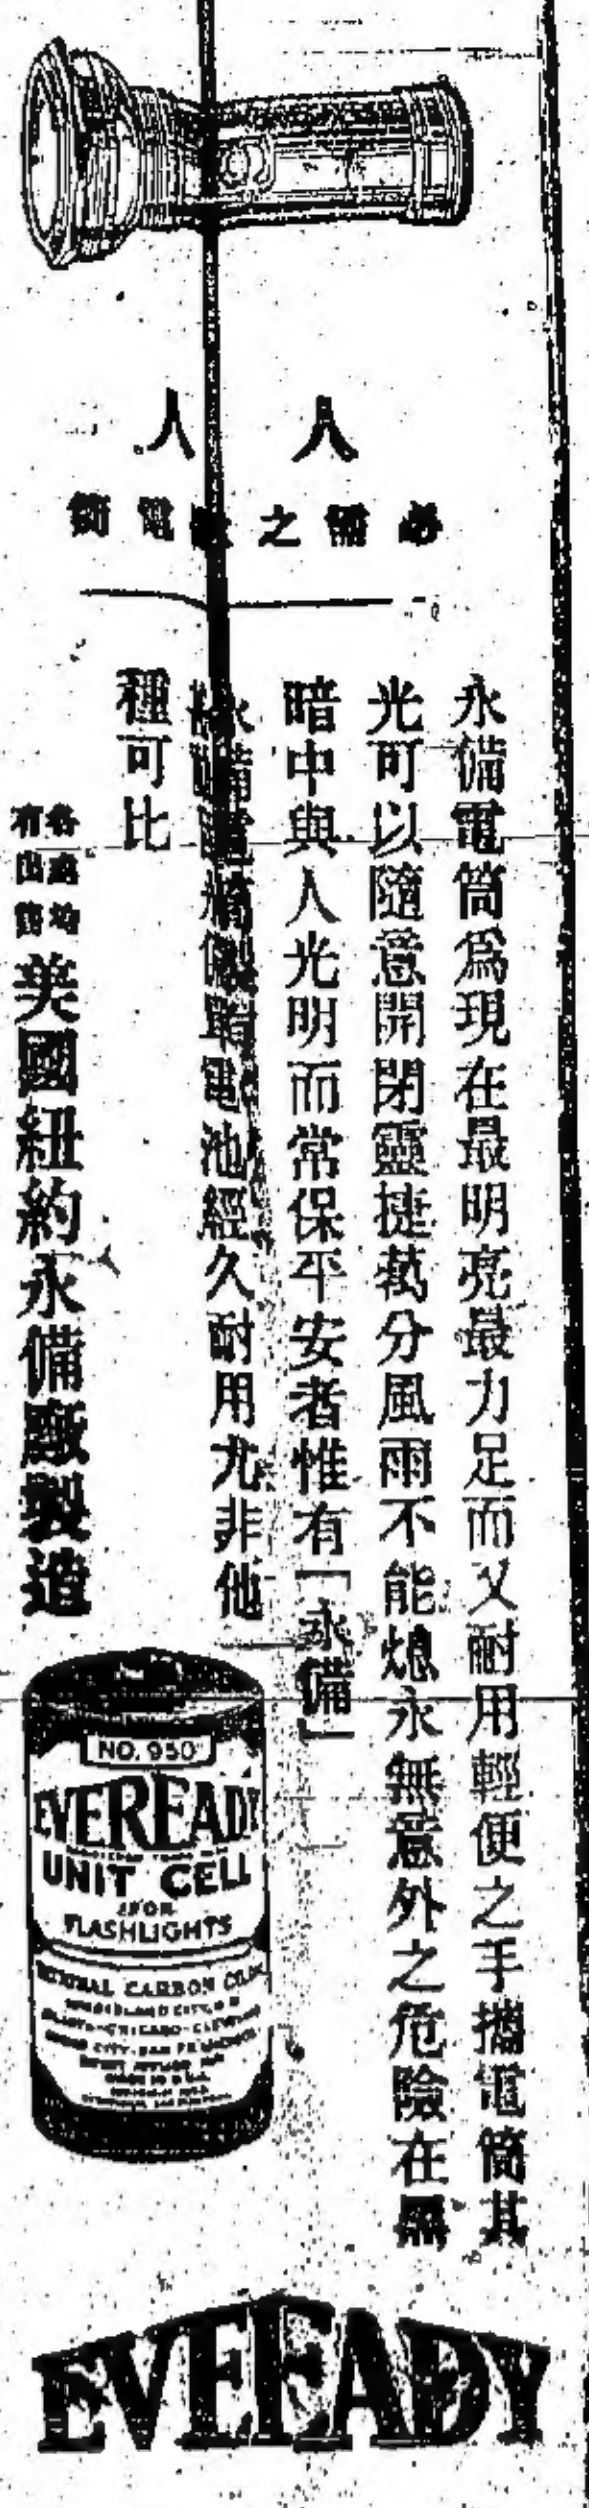 人人
必需之電筒
永備電筒爲現在最明亮最力足而又耐用輕便之手攜電筒其
光可以隨意開閉靈捷萬分風雨不能熄永無意外之危險在黑
暗中與人光明而常保平安者惟有「永備」
永備電池經久耐用尤非他
種可比
各處均
有出售
美國紐約永備廠製造
NO. 950
EVEREADY
UNIT CELL
FOR
FLASHLIGHTS
NATIONAL CARBON CO. INC.
EVEREADY